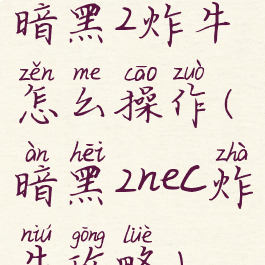 暗黑2炸牛
zěn me cāo zuò
怎么操作(
àn hēi zhà
暗黑2nec炸
niú gōng lüè
牛攻略)